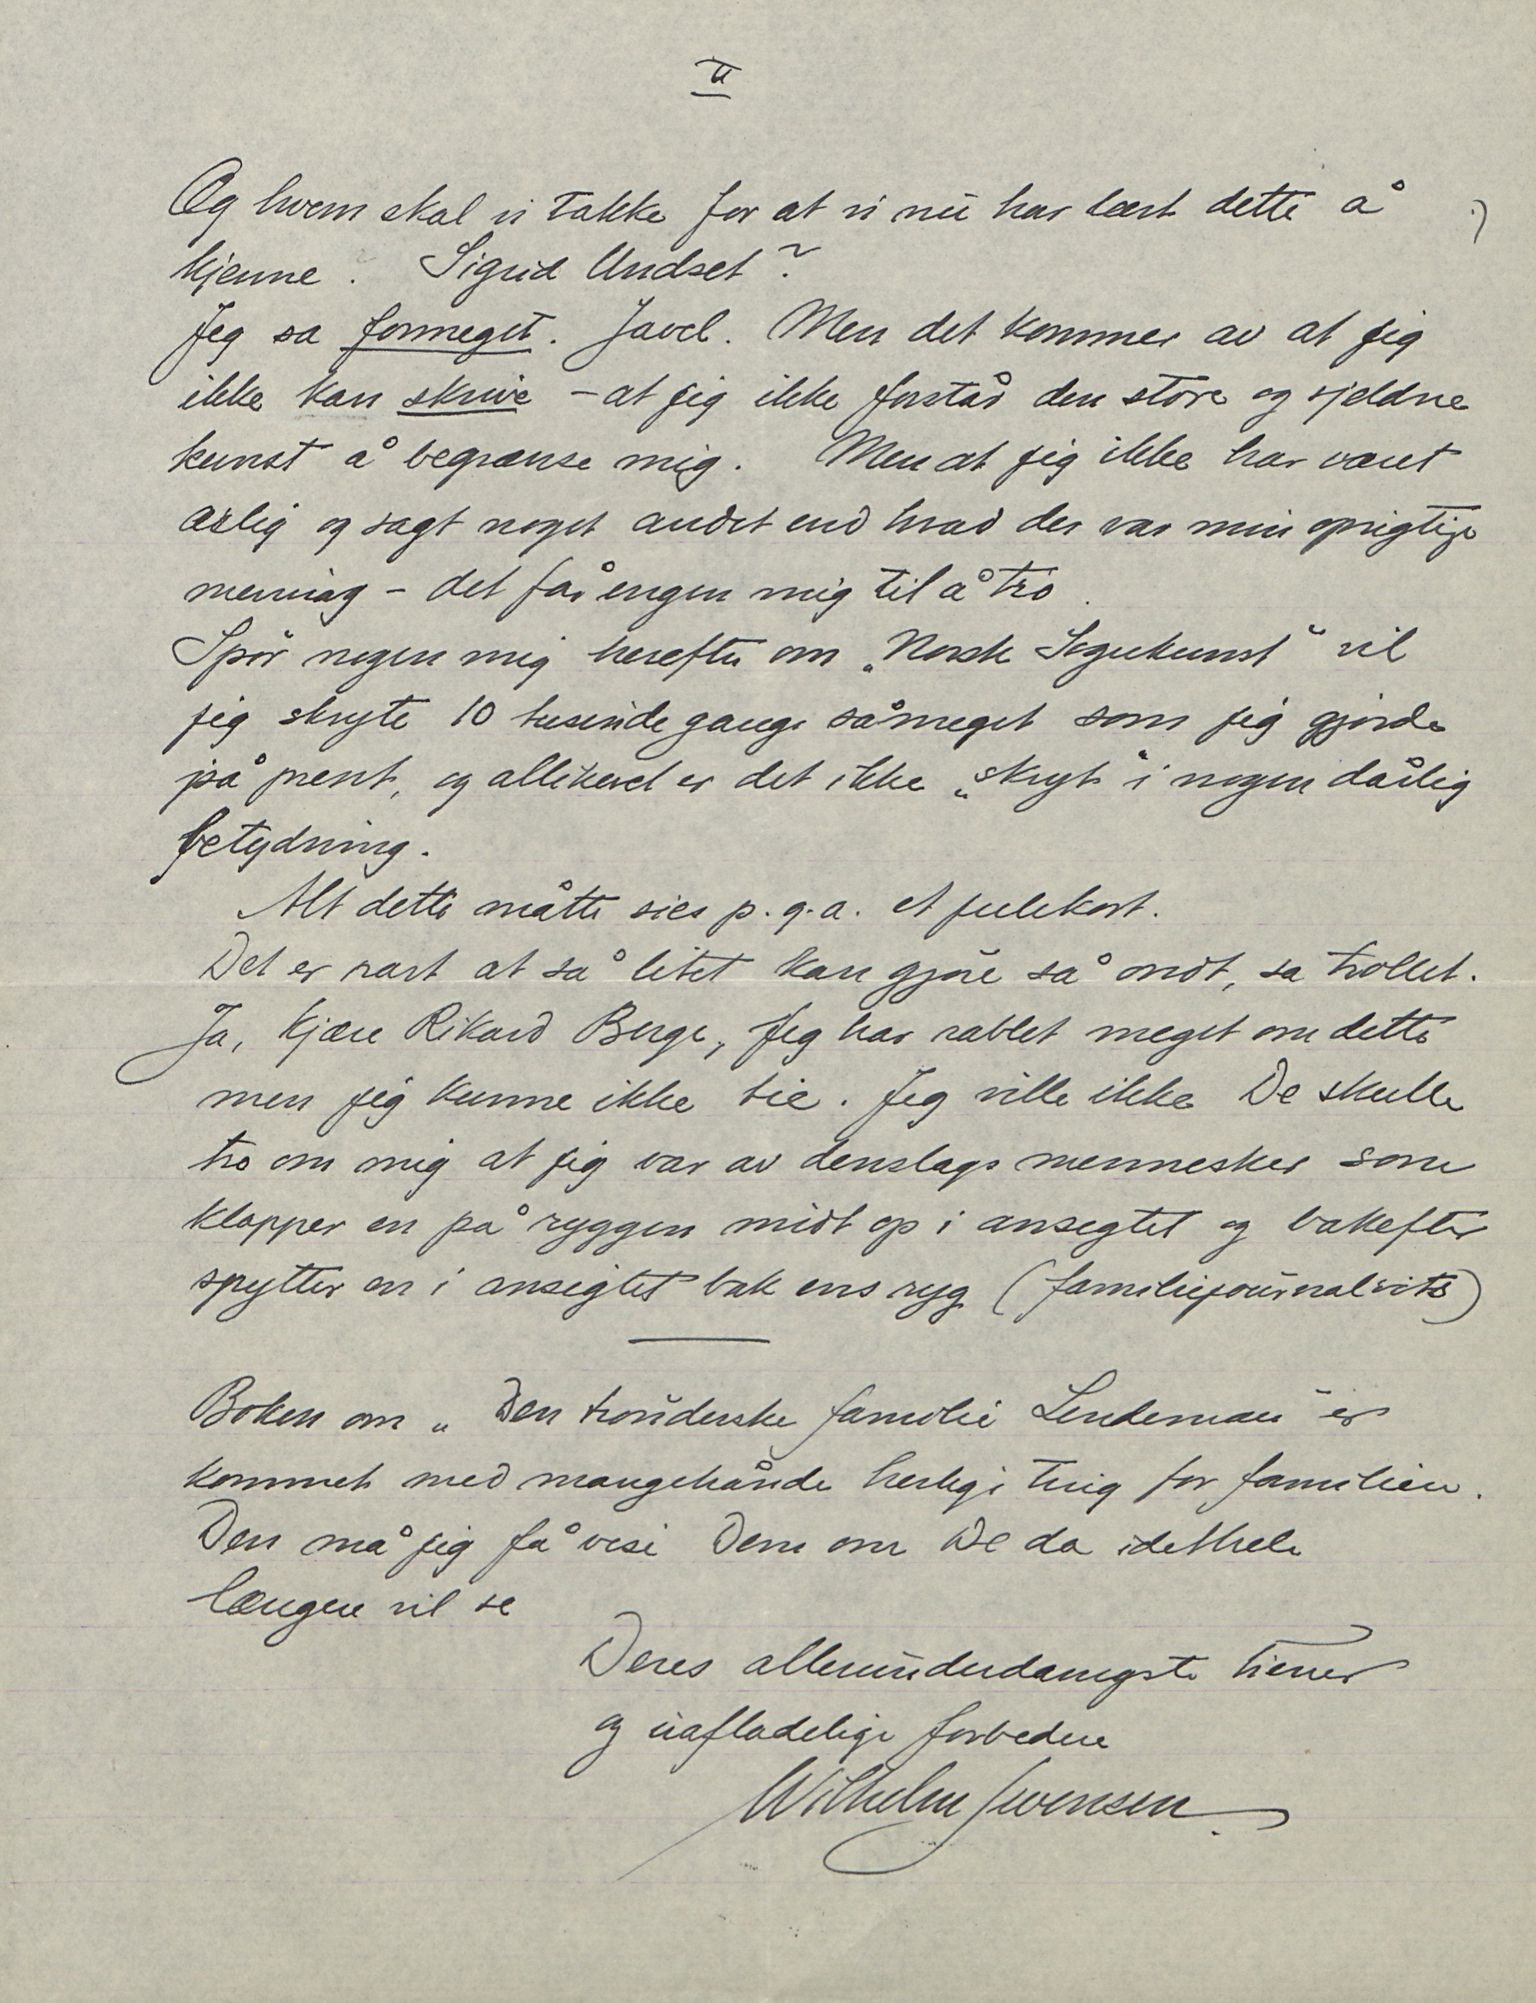 II
Og hvem skal vi takke for at vi nu har lært dette å
kjenne. Sigrid Undset?
Jeg sa formeget. Javel. Men det kommer av at jeg
ikke kan skrive – at jeg ikke forstår den store og sjeldne
kunst å begrænse mig. Men at jeg ikke har været
ærlig og sagt noget andet end hvad der var min oprigtige
mening – det får ingen mig til å tro.
Spør nogen mig herefter om „Norsk Sogukunst" vil
jeg skryte 10 tusinde gange såmeget som jeg gjorde
på prent, og allikevel er det ikke „skryt" i nogen dårlig
betydning.
Alt dette måtte sies p.g.a. et julekort.
Det er rart at så litet kan gjøre så ondt, sa trollet.
Ja, kjære Rikard Berge, Jeg har rablet meget om dette
men jeg kunne ikke tie. Jeg ville ikke De skulle
tro om mig at jeg var av denslags mennesker som
klapper en på ryggen midt op i ansigtet og bakefter
spytter en i ansigtet bak ens ryg (familiejournalvits)
Boken om „Den trønderske familie Lindeman" er
kommet med mangehånde herlige ting for familien.
Den må jeg få vise Dem om De da idethele
længere vil se
Deres allerunderdanigste tiener
og uafladelige forbedere
Wilhelm Swensen